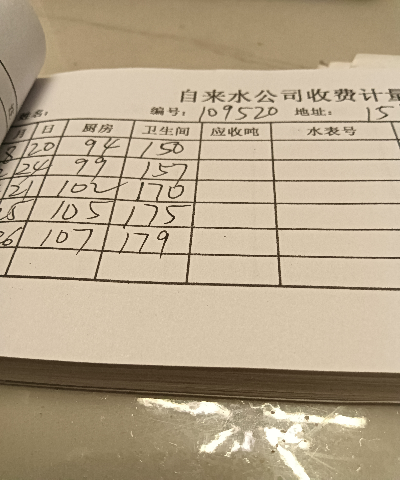 自来水公司收费计量
姓名: 编号: 109520 地址: 15
月 日 厨房 卫生间 应收吨 水表号
8 20 94 150
24 99 157
21 102 170
105 175
26 107 179